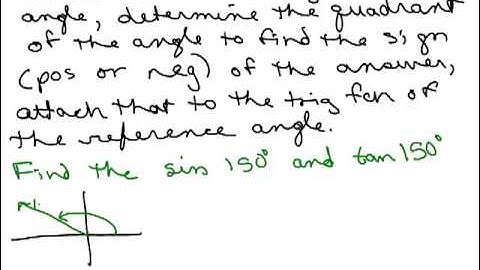 angle, determine the quadrant
of the angle to find the sign
(pos or neg) of the answer,
attach that to the trig fcn of
the reference angle.
Find the sin 150° and tan 150°